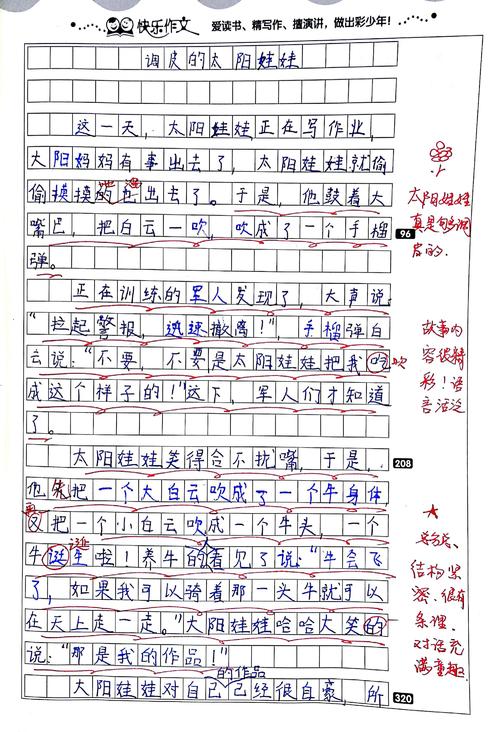 快乐作文
爱读书、精写作、擅演讲，做出彩少年！
调皮的太阳娃娃
这一天，太阳娃娃正在写作业，
太阳妈妈有事出去了，太阳娃娃就偷
偷摸摸的也出去了。于是，他鼓着大
嘴巴，把白云一吹，吹成了一个手榴
弹。
96
太阳娃娃
真是够调
皮的.
正在训练的军人发现了，大声说：
“拉起警报，迅速撤离！”，手榴弹白
云说：“不要，不要是太阳娃娃把我吃
吹
成这个样子的！”这下，军人们才知道
了。
故事内
容很精
彩！语
言活泼
太阳娃娃笑得合不扰嘴，于是，
208
他先把一个大白云吹成了一个牛身体
再
又把一个小白云吹成一个牛头，一个
牛诞生啦！养牛的看见了说：“牛会飞
诞
人
了，如果我可以骑着那一头牛就可以
在天上走一走。”太阳娃娃哈哈大笑的
说：“那是我的作品！”
结构紧
密、很有
条理、
对话充
满童趣
的作品
太阳娃娃对自己已经很自豪，所
320